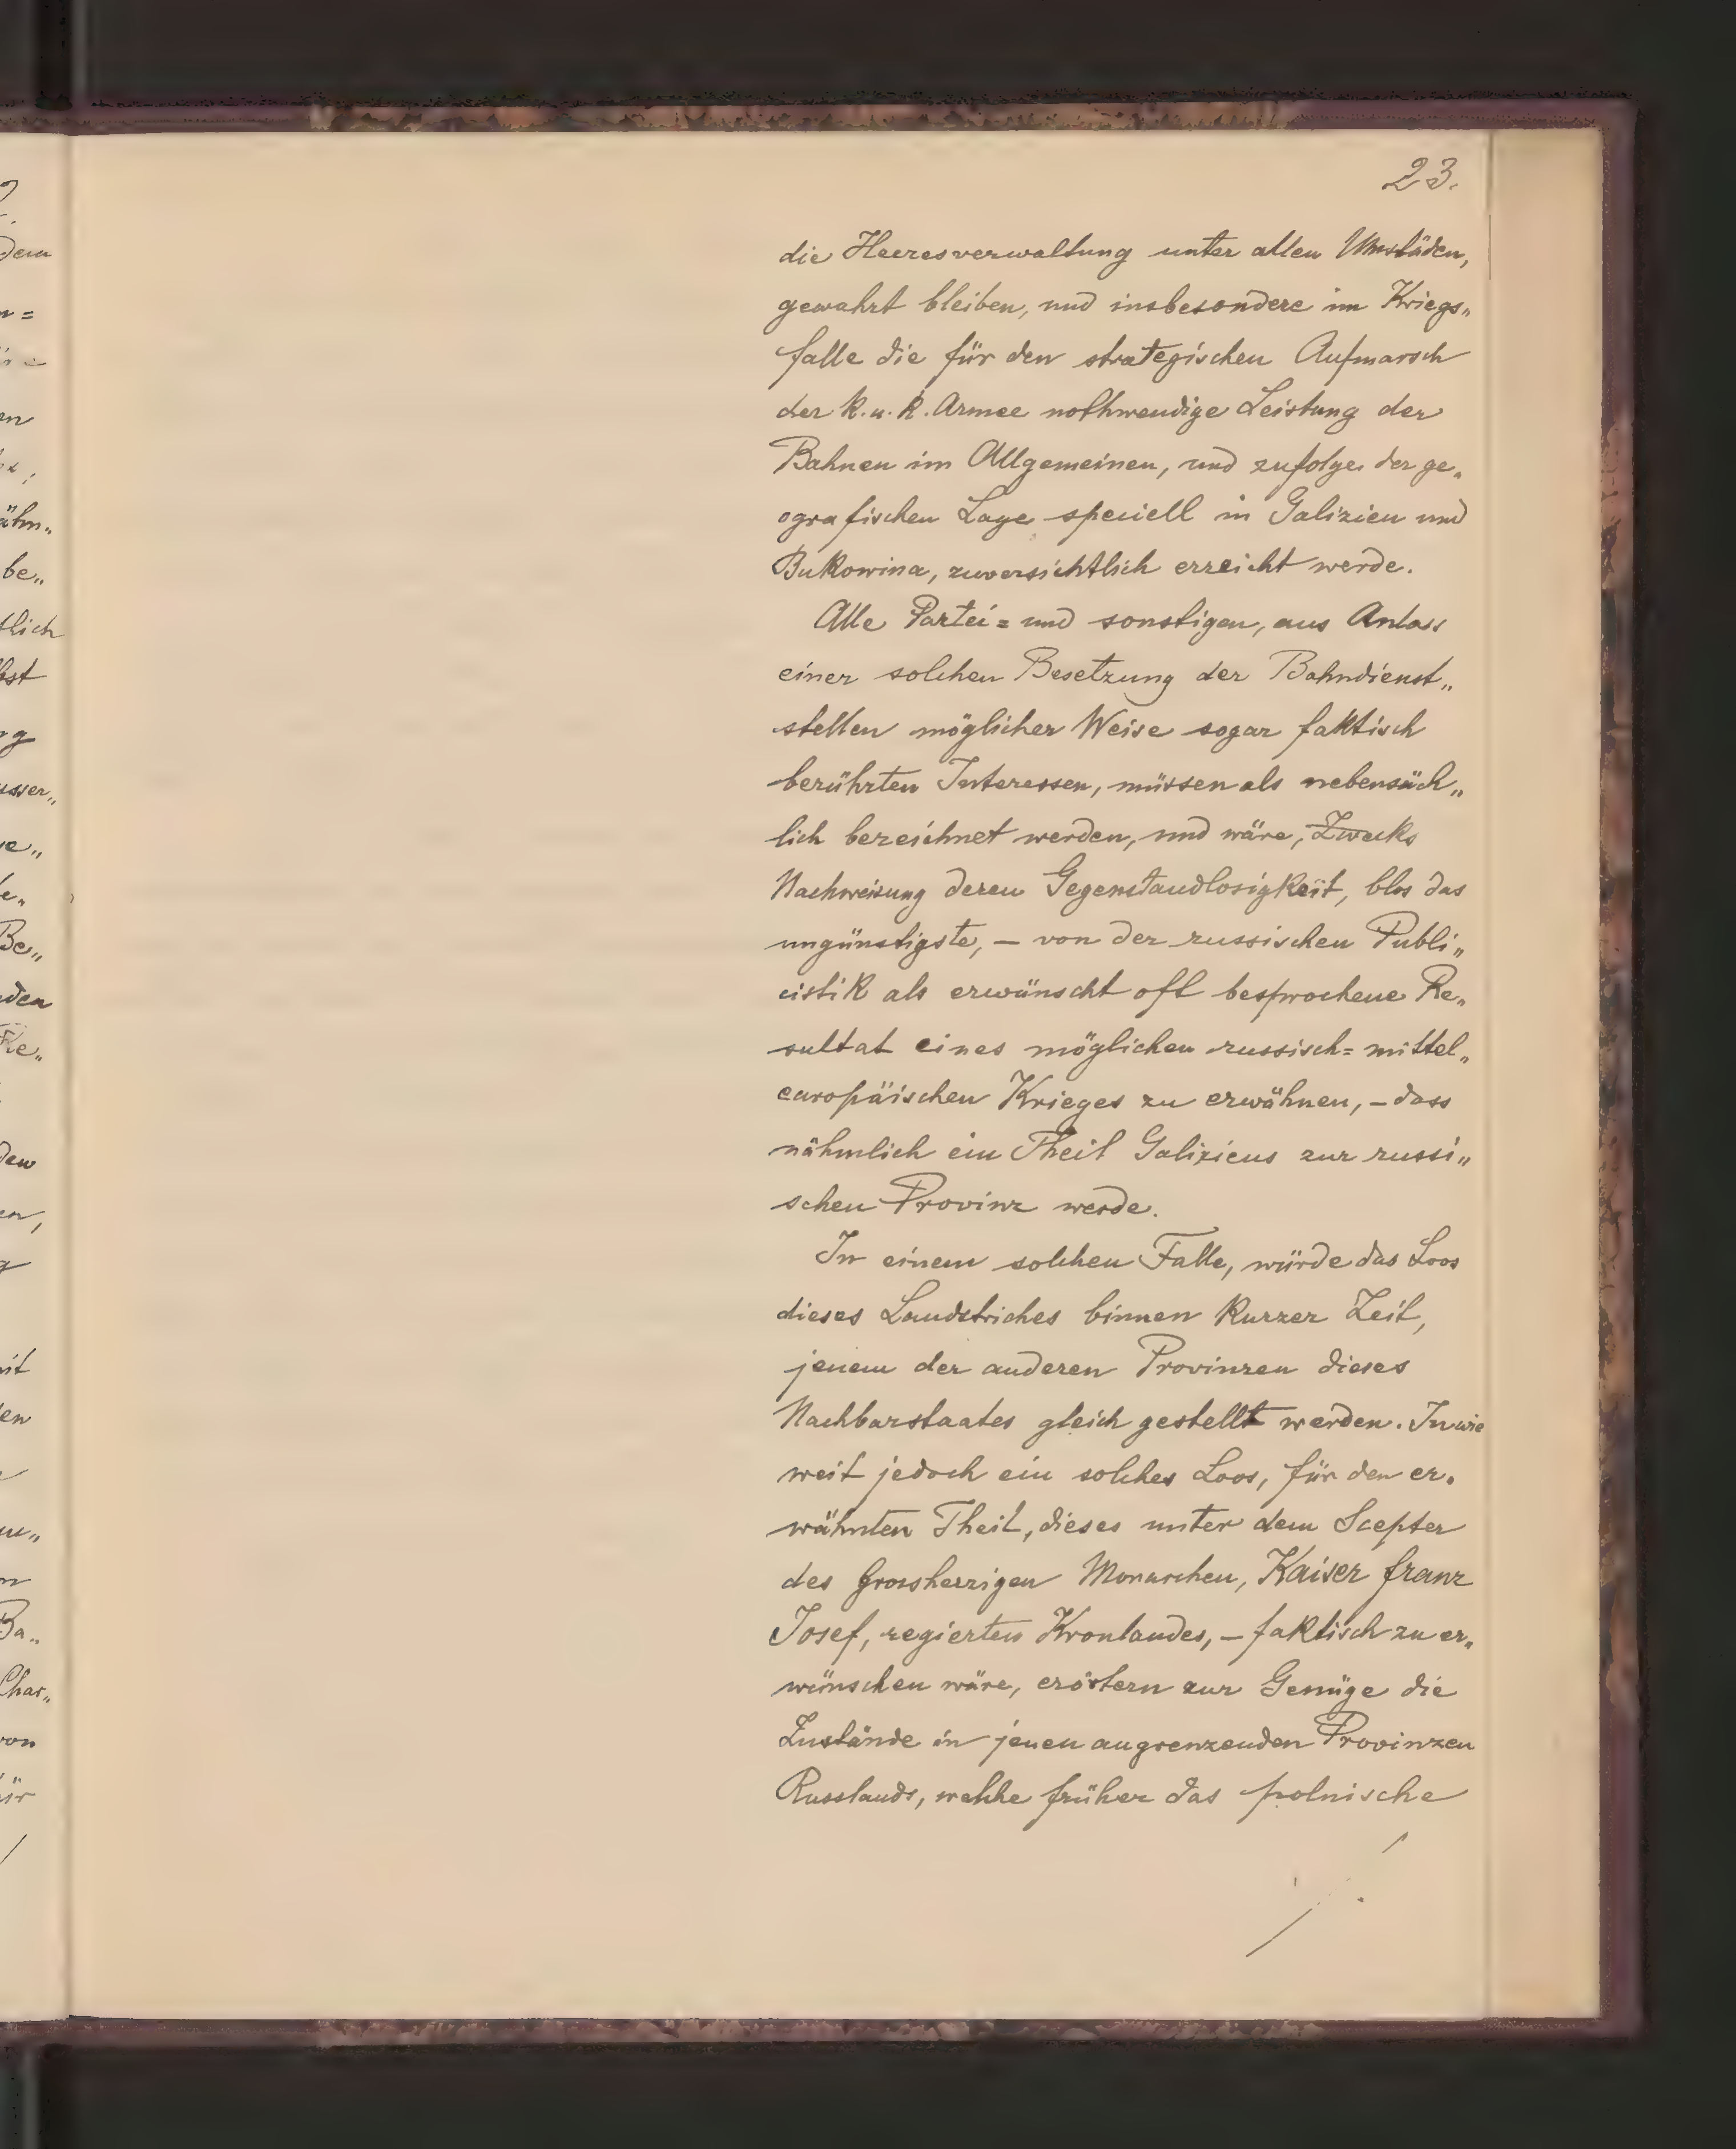 23.
die Heeresverwaltung unter allen Umständen,
gewahrt bleiben, und insbesondere im Kriegs„
falle die für den strategischen Aufmarsch
der k. u. k. Armee nothwendige Leistung der
Bahnen im Allgemeinen, und zufolge der ge„
ografischen Lage speciell in Galizien und
Bukowina, zuversichtlich erreicht werde.
Alle Partei= und sonstigen, aus Anlass
einer solchen Besetzung der Bahndienst„
stellen möglicher Weise sogar faktisch
berührten Interessen, müssen als nebensäch„
lich bezeichnet werden, und wäre, Zwecks
Nachweisung deren Gegenstandlosigkeit, blos das
ungünstigste, – von der russischen Publi„
cistik als erwünscht oft besprochene Re„
sultat eines möglichen russisch= mittel„
europäischen Krieges zu erwähnen, – dass
nähmlich ein Theil Galiziens zur russi„
schen Provinz werde.
In einem solchen Falle, würde das Loos
dieses Landstriches binnen kurzer Zeit,
jenem der anderen Provinzen dieses
Nachbarstaates gleich gestellt werden. Inwie
weit jedoch ein solches Loos, für den er„
wähnten Theil, dieses unter dem Scepter
des grossherzigen Monarchen, Kaiser Franz
Josef, regierten Kronlandes, – faktisch zu er„
wünschen wäre, erörtern zur Genüge die
Zustände in jenen angrenzenden Provinzen
Russlands, welche früher das polnische